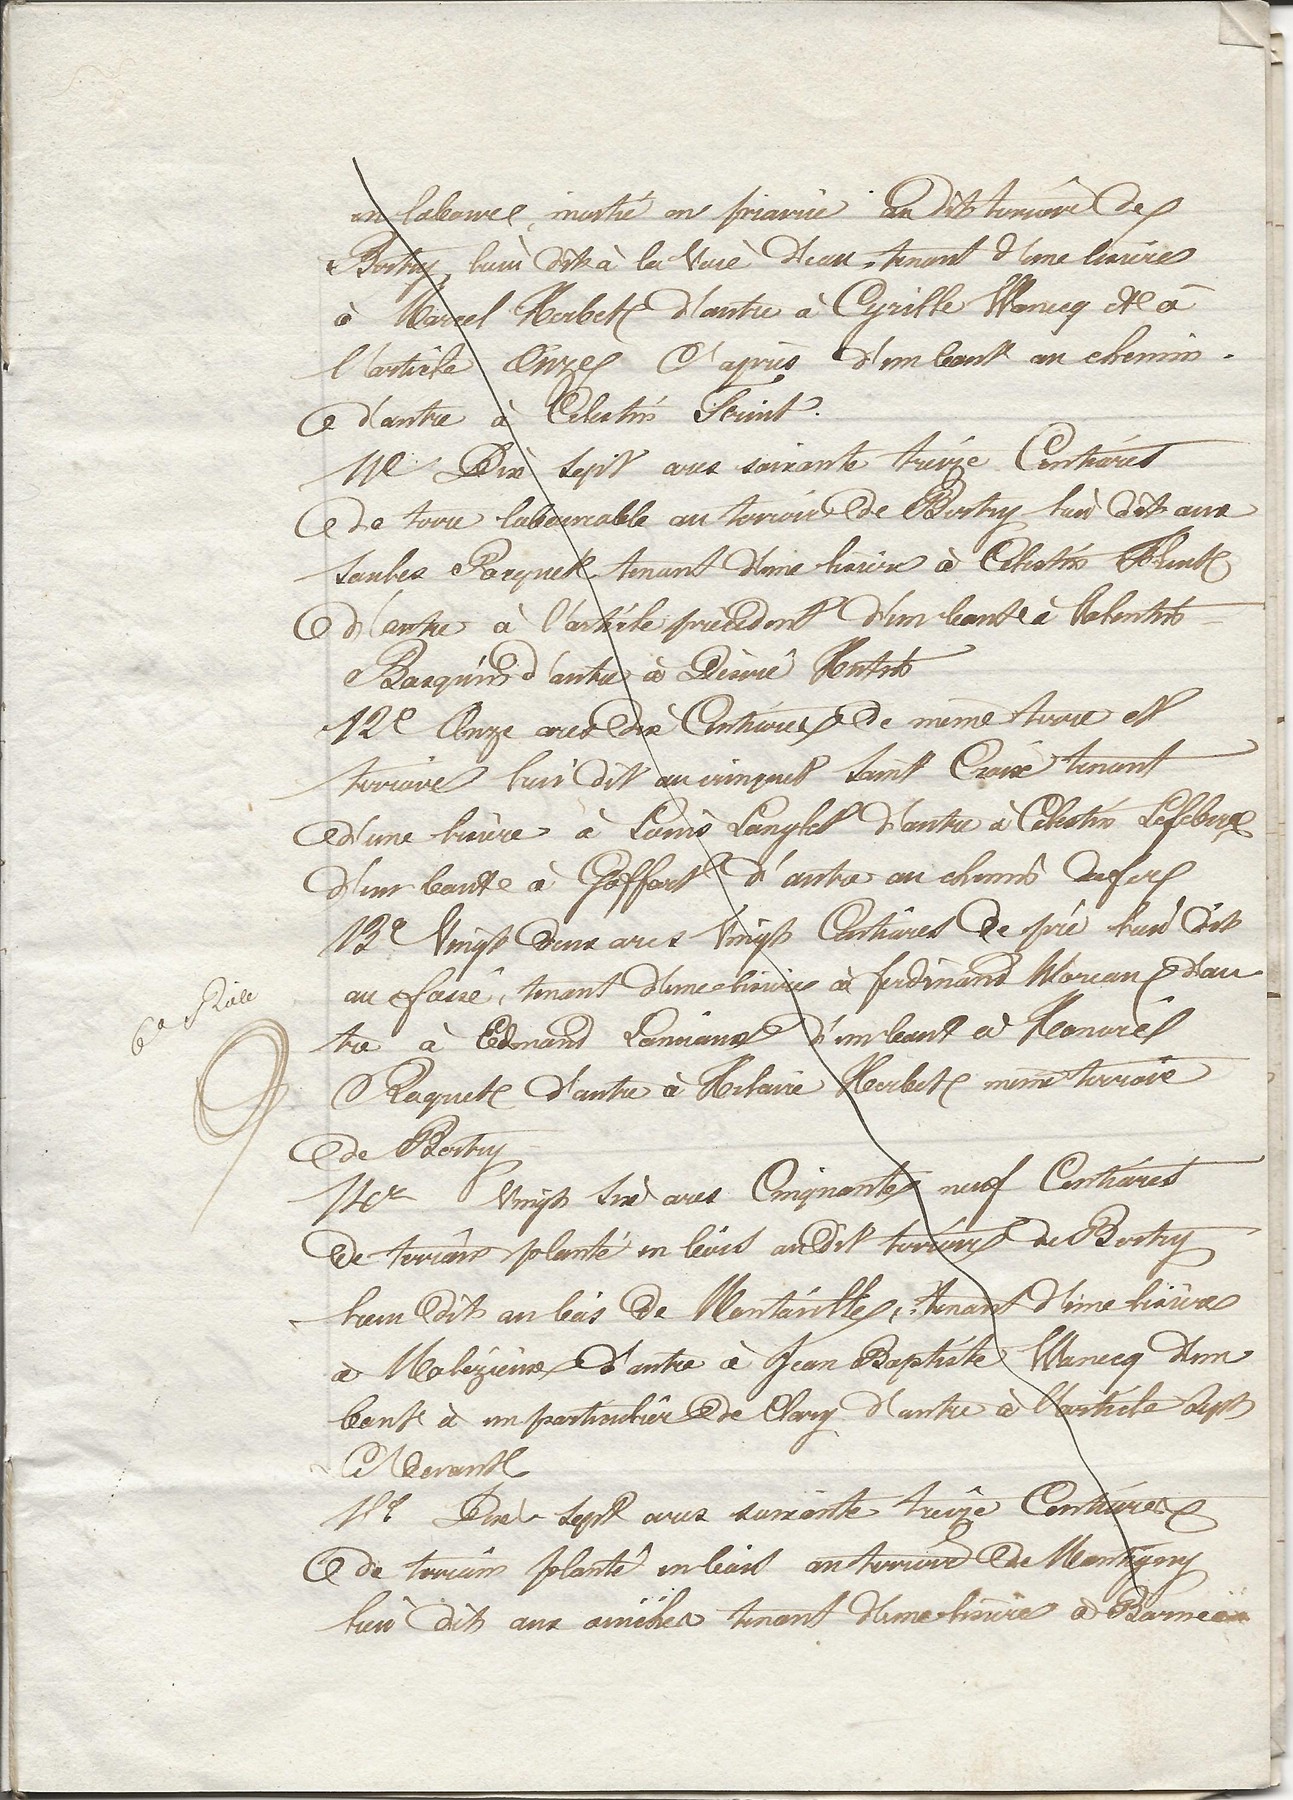 en laboure, moitié en prairie au dit terroire de
Bertry, lieu dit à la Voie d'eau, tenant d'une lisière
à Marcel Herbet d'autre à Cyrille Wanecq et à
l'article Onze Ci après d'un bout au chemin
d'autre à Célestin
11e Dix sept ares soixante treize Centiares
de terre labourable au terroir de Bertry lieu dit aux
Saules Pacquet, tenant d'une lisière à Célestin
d'autre à l'article précédent d'un bout à Valentin
Basquin d'autre à Désiré
12e Onze ares dix Centiares de même terre et
terroire lieu dit au rinquet Saint Croix tenant
d'une lisière à Louis Langlet d'autre à Célestin Lefebvre
d'un bout à Goffart d'autre au chemin de fer
13e Vingt deux ares Vingt Centiares de pré lieu dit
au fossé, tenant d'une lisière à ferdinand Moreau d'au
tre à Edmand Lamiaux d'un bout à Honoré
Raquet d'autre à Hilaire Herbet même terroire
de Bertry
6e Rôle
14e Vingt six ares Cinquante neuf Centiares
de terrain planté en bois au dit terroire de Bertry
lieu dit au bois de Montaville, tenant d'une lisière
à Malézieux d'autre à Jean Baptiste Wanecq d'un
bout à un particulier de Clary d'autre à l'article Sept
Ci devant
15e Dix sept ares soixante treize Centiares
de terrain planté en bois au terroire de Montigny
lieu dit aux tenant d'une lisière à